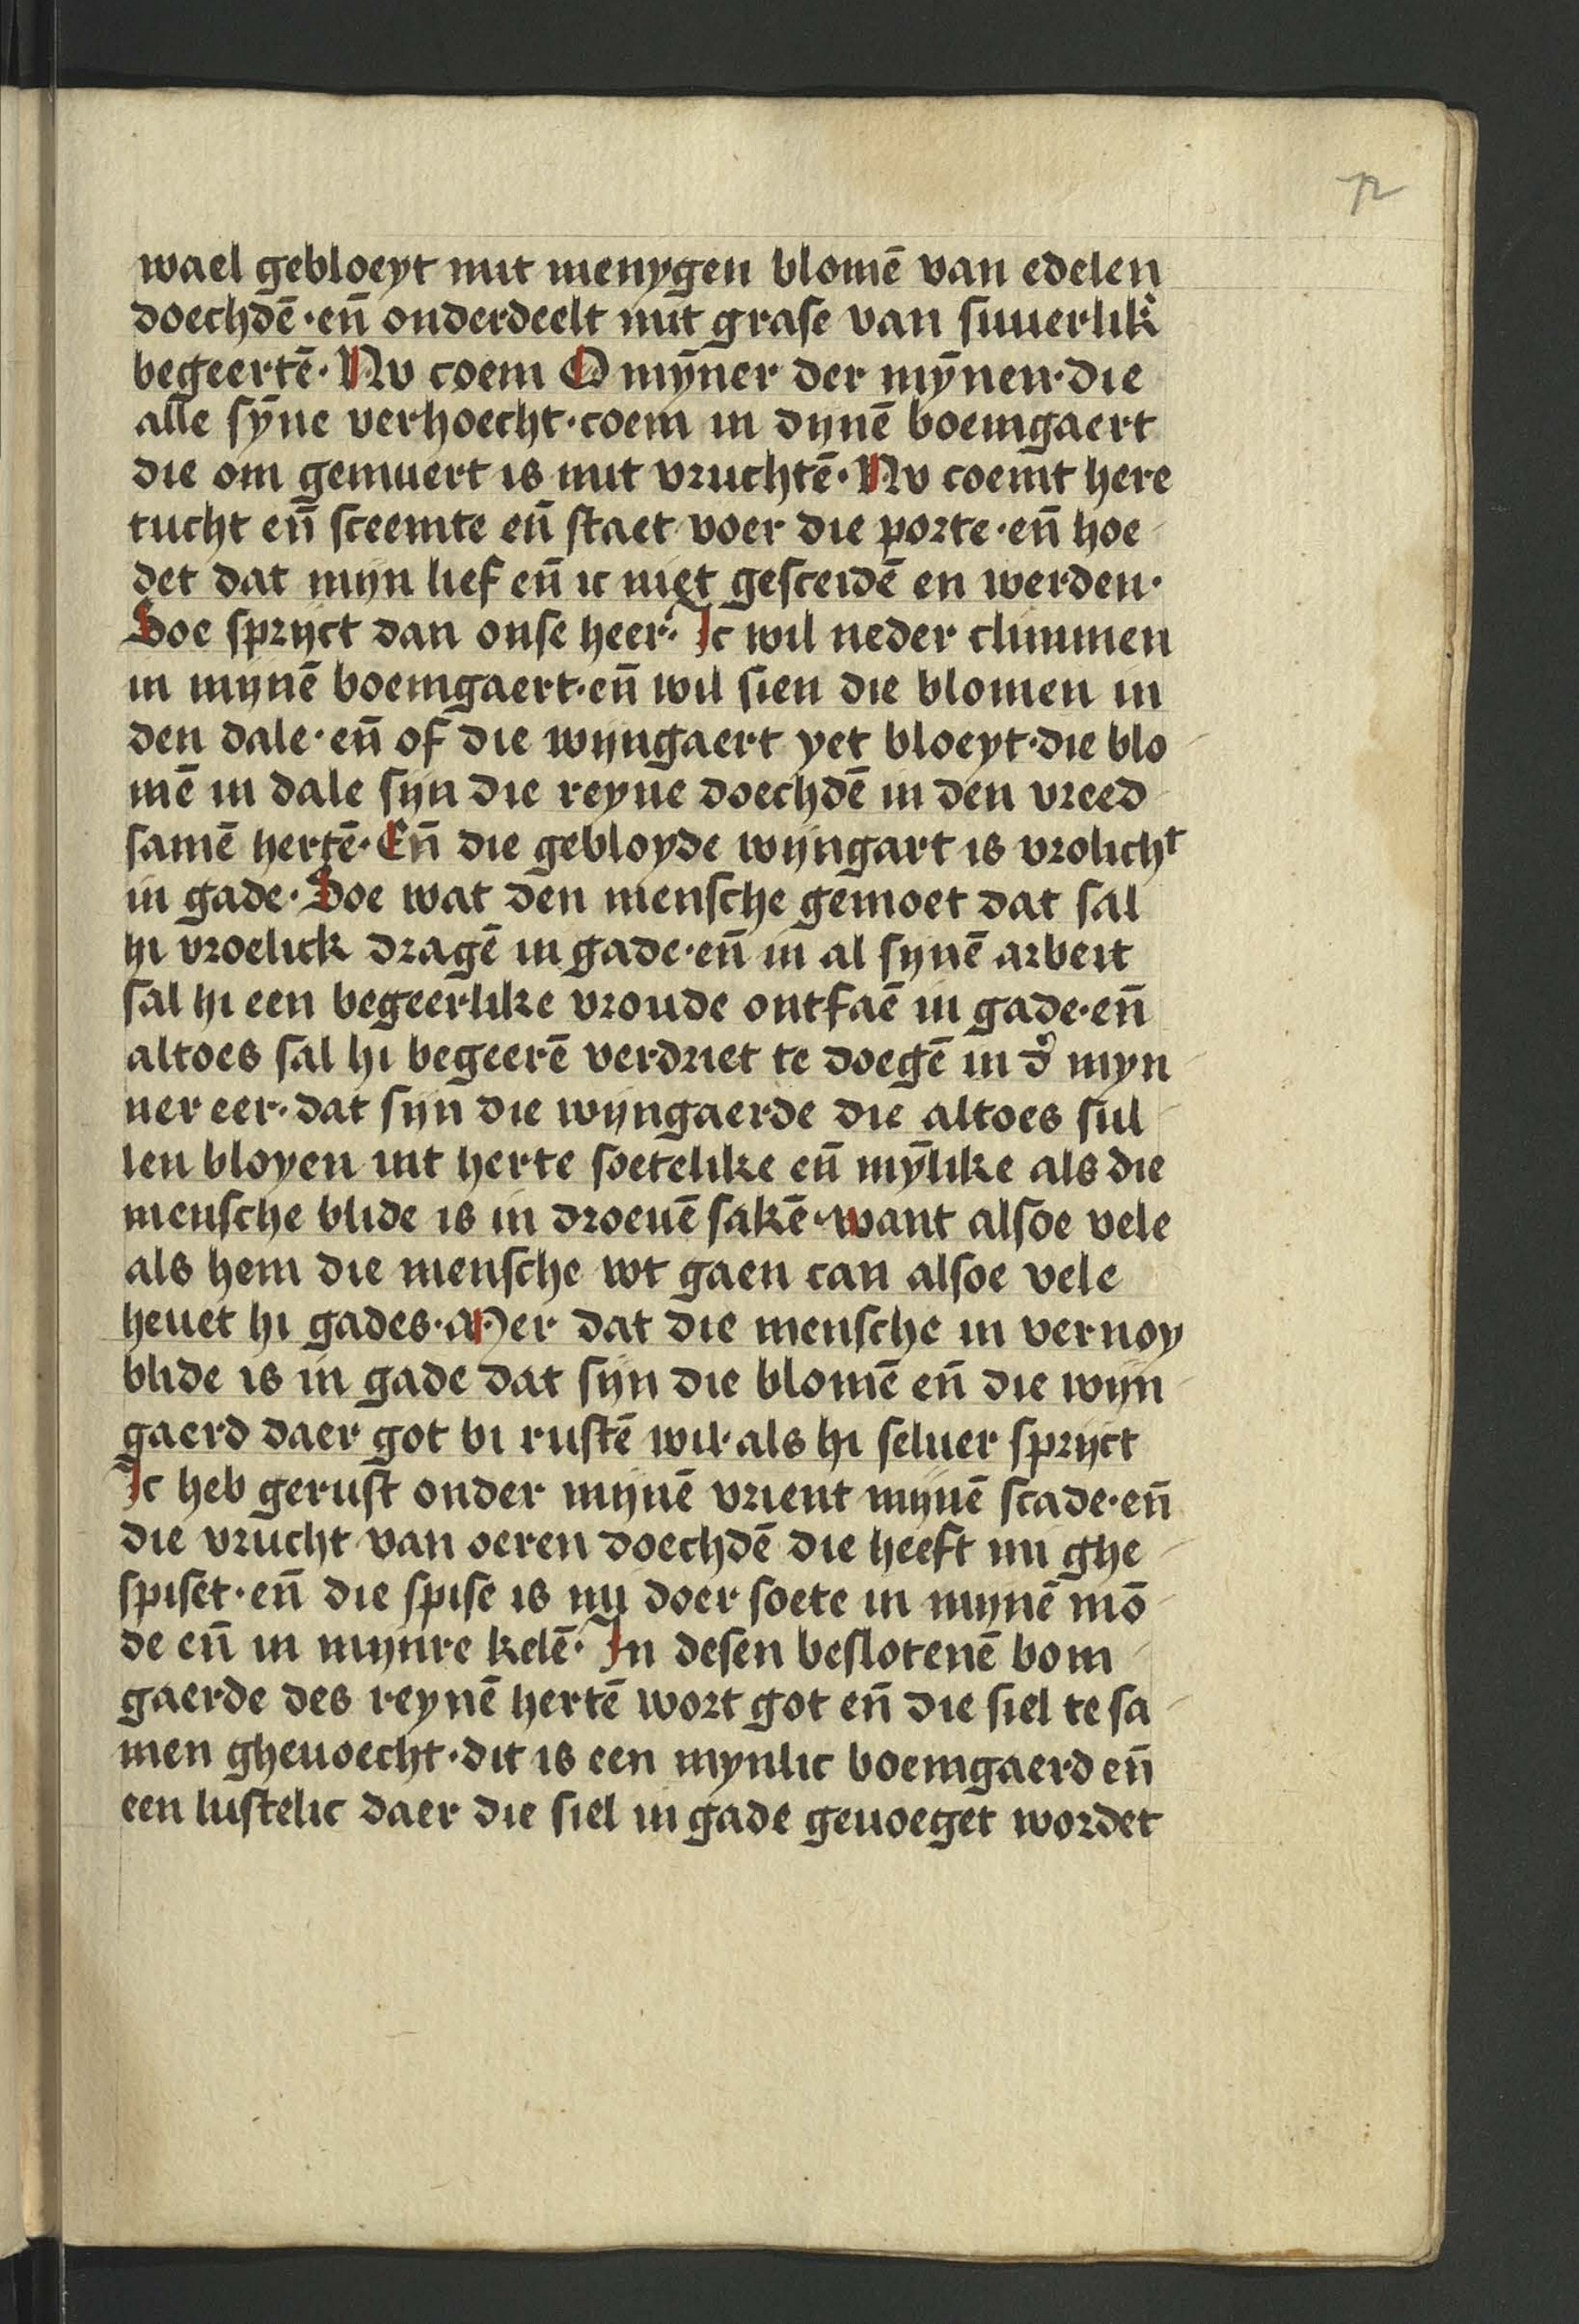 72
wael gebloeyt mit menygen blomē van edelen
doechdē · eñ onderdeelt mit grase van suuerlik̾
begeertē · Nv coem O mȳner der mȳnen · die
alle sȳne verhoecht · coem in dijnē boemgaert
die om gemuert is mit vruchtē · Nv coemt here
tucht eñ sceemte eñ staet voer die porte · eñ hoe
det dat mijn lief eñ ic niet gesceidē en werden ·
Soe sprijct dan onse heer · Ic wil neder climmen
in mijnē boemgaert · eñ wil sien die blomen in
den dale · eñ of die wijngaert yet bloeyt · die blo
mē in dale sijn die reyne doechdē in den vreed
samē hertē · Eñ die gebloyde wijngart is vrolichᵗ
in gade · Soe wat den mensche gemoet dat sal
hi vroelick dragē in gade · eñ in al sijnē arbeit
sal hi een begeerlike vroude ontfaē in gade · eñ
altoes sal hi begeerē verdriet te doegē in d̾ myn
ner eer · dat sijn die wijngaerde die altoes sul
len bloyen int herte soetelike eñ mȳlike als die
mensche blide is in droeuē sakē · want alsoe vele
als hem die mensche wt gaen can alsoe vele
heuet hi gades · Mer dat die mensche in vernoy
blide is in gade dat sijn die blomē eñ die wijn
gaerd daer got bi rustē wil · als hi seluer sprijct
Ic heb gerust onder mijnē vrient mijnē scade · eñ
die vrucht van oeren doechdē die heeft mi ghe
spiset · eñ die spise is mi doer soete in mijnē mō
de eñ in mijnre kelē · In desen beslotenē bom
gaerde des reynē hertē wort got eñ die siel te sa
men gheuoecht · dit is een mynlic boemgaerd eñ
een lustelic daer die siel in gade geuoeget wordet